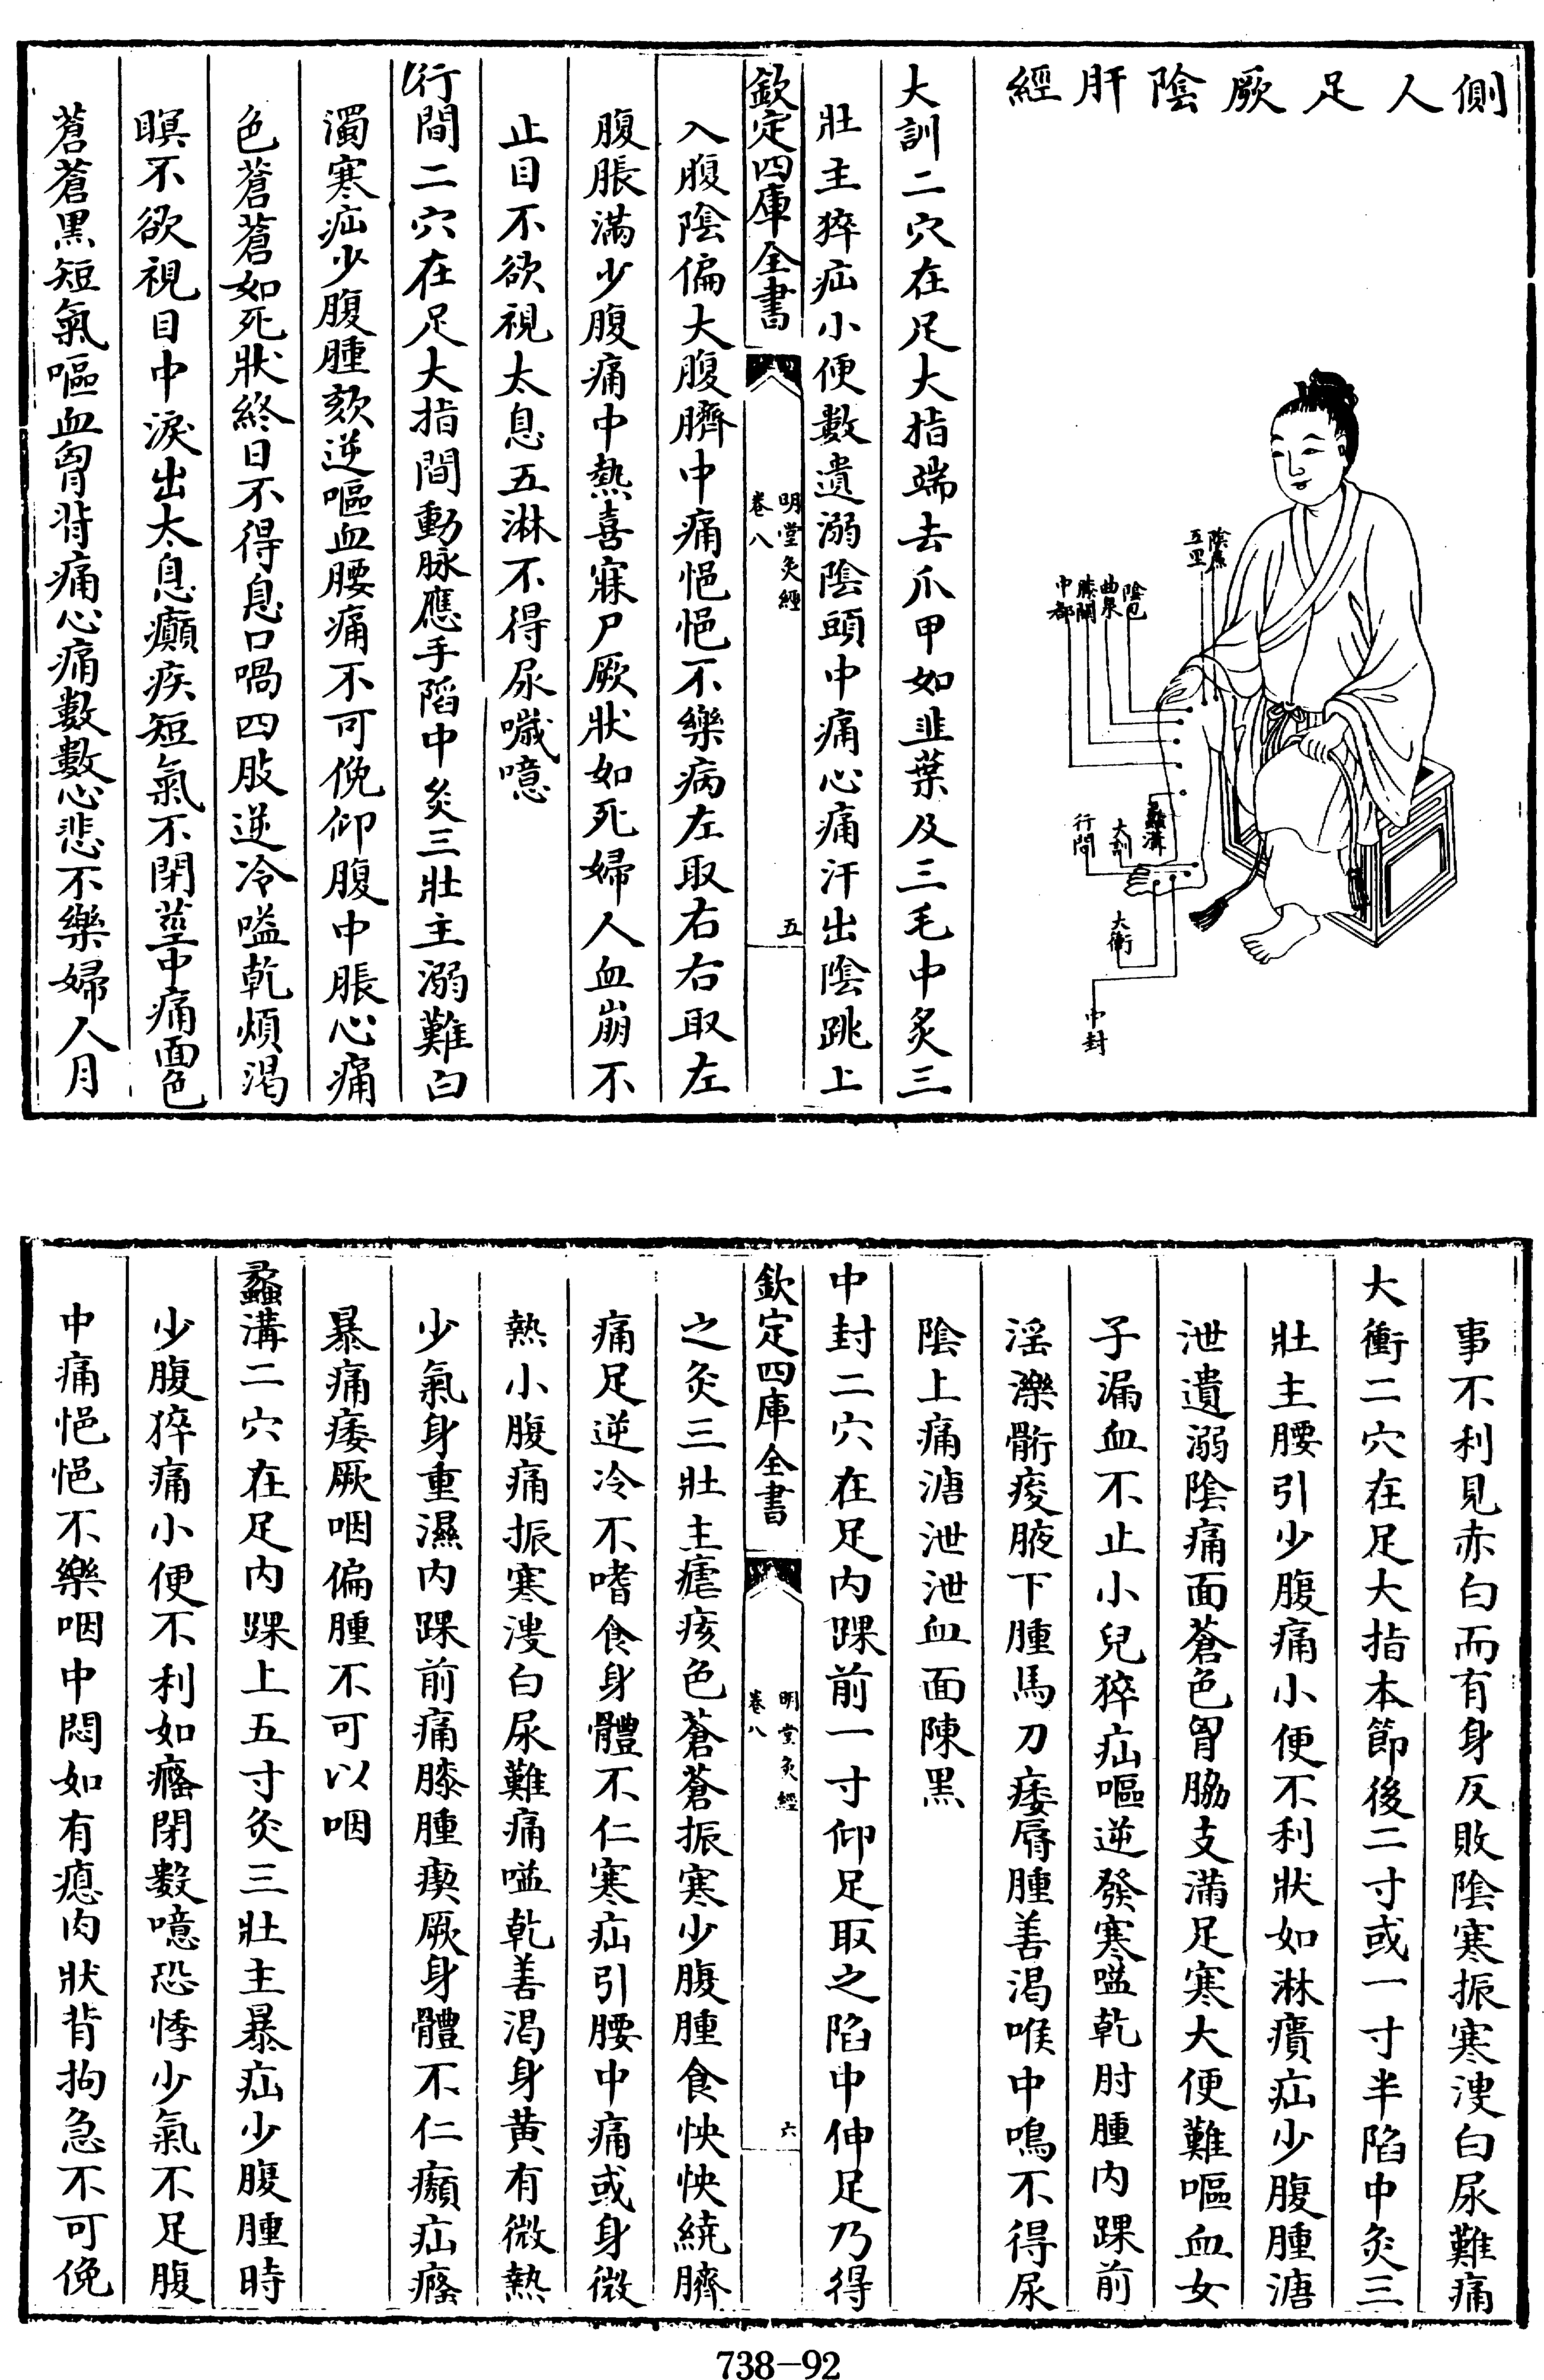 側人足厥陰肝經
陰廉
五里
陰包
曲泉
膝關
中都
蠡溝
大訓
行間
大衝
中封
大訓二穴在足大指端去爪甲如韭葉及三毛中炙三
壯主猝疝小便數遺溺陰頭中痛心痛汗出陰跳上
欽定四庫全書
明堂灸經
卷八
五
入腹陰偏大腹臍中痛悒悒不樂病左取右右取左
腹脹滿少腹痛中熱喜寐尸厥狀如死婦人血崩不
止目不欲視太息五淋不得尿噦噫
行間二穴在足大指間動脉應手陷中灸三壯主溺難白
濁寒疝少腹腫欬逆嘔血腰痛不可俛仰腹中脹心痛
色蒼蒼如死狀終日不得息口喎四肢逆冷嗌乾煩渴
瞑不欲視目中淚出太息癲疾短氣不閉莖中痛面色
蒼蒼黑短氣嘔血胷背痛心痛數數心悲不樂婦人月
事不利見赤白而有身反敗陰寒振寒溲白尿難痛
大衝二穴在足大指本節後二寸或一寸半陷中灸三
壯主腰引少腹痛小便不利狀如淋㿉疝少腹腫溏
泄遺溺陰痛面蒼色胷脇支滿足寒大便難嘔血女
子漏血不止小兒猝疝嘔逆發寒嗌乾肘腫內踝前
淫濼䯒痠腋下腫馬刀痿脣腫善渴喉中鳴不得尿
陰上痛溏泄泄血面陳黑
中封二穴在足內踝前一寸仰足取之陷中伸足乃得
欽定四庫全書
明堂灸經
卷八
六
之灸三壯主瘧痎色蒼蒼振寒少腹腫食怏怏繞臍
痛足逆冷不嗜食身體不仁寒疝引腰中痛或身微
熱小腹痛振寒溲白尿難痛嗌乾善渴身黃有微熱
少氣身重濕內踝前痛膝腫瘈厥身體不仁癩疝癃
暴痛痿厥咽偏腫不可以咽
蠡溝二穴在足內踝上五寸灸三壯主暴疝少腹腫時
少腹猝痛小便不利如癃閉數噫恐悸少氣不足腹
中痛悒悒不樂咽中悶如有瘜肉狀背拘急不可俛
738-92